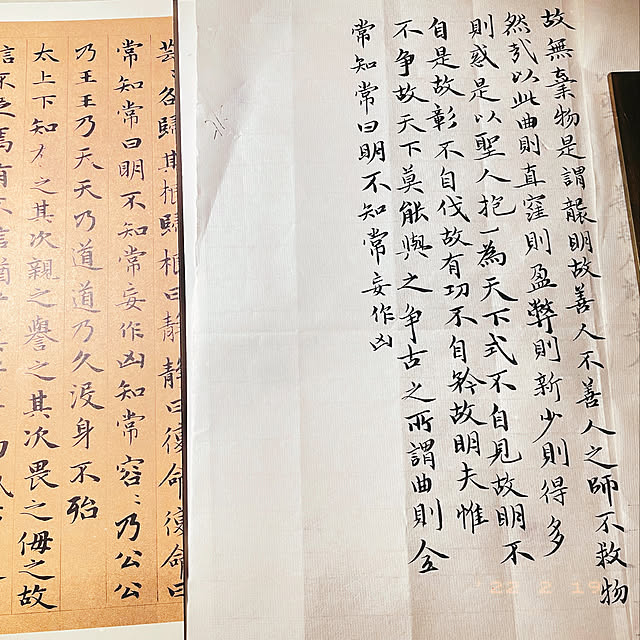 故無棄物是謂襲明故善人不善人之師不救物
然哉以此曲則直窪則盈弊則新少則得多
則惑是以聖人抱一為天下式不自見故明不
自是故彰不自伐故有功不自矜故明夫惟
不争故天下莫能與之争古之所謂曲則全
常知常曰明不知常妄作凶
芸〻各歸其根歸根曰靜靜曰復命復命曰
常知常曰明不知常妄作凶知常容〻乃公公
乃王王乃天天乃道道乃久没身不殆
太上下知之其次親之譽之其次畏之侮之故
信不足焉有不信猶
'22 2 19